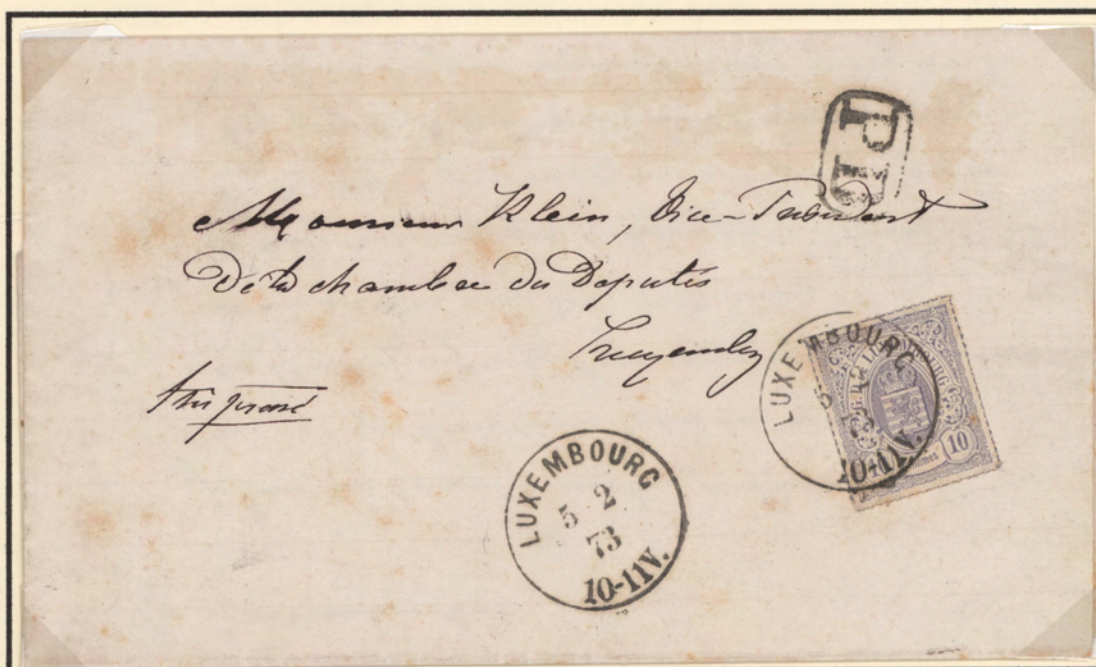 PD
Monsieur Klein, Vice-President
De la chambre du Deputés
Luxembg
très pressé
LUXEMBOURG
5 2
73
10-11V.
LUXEMBOURG
5 2
73
10-11V.
10